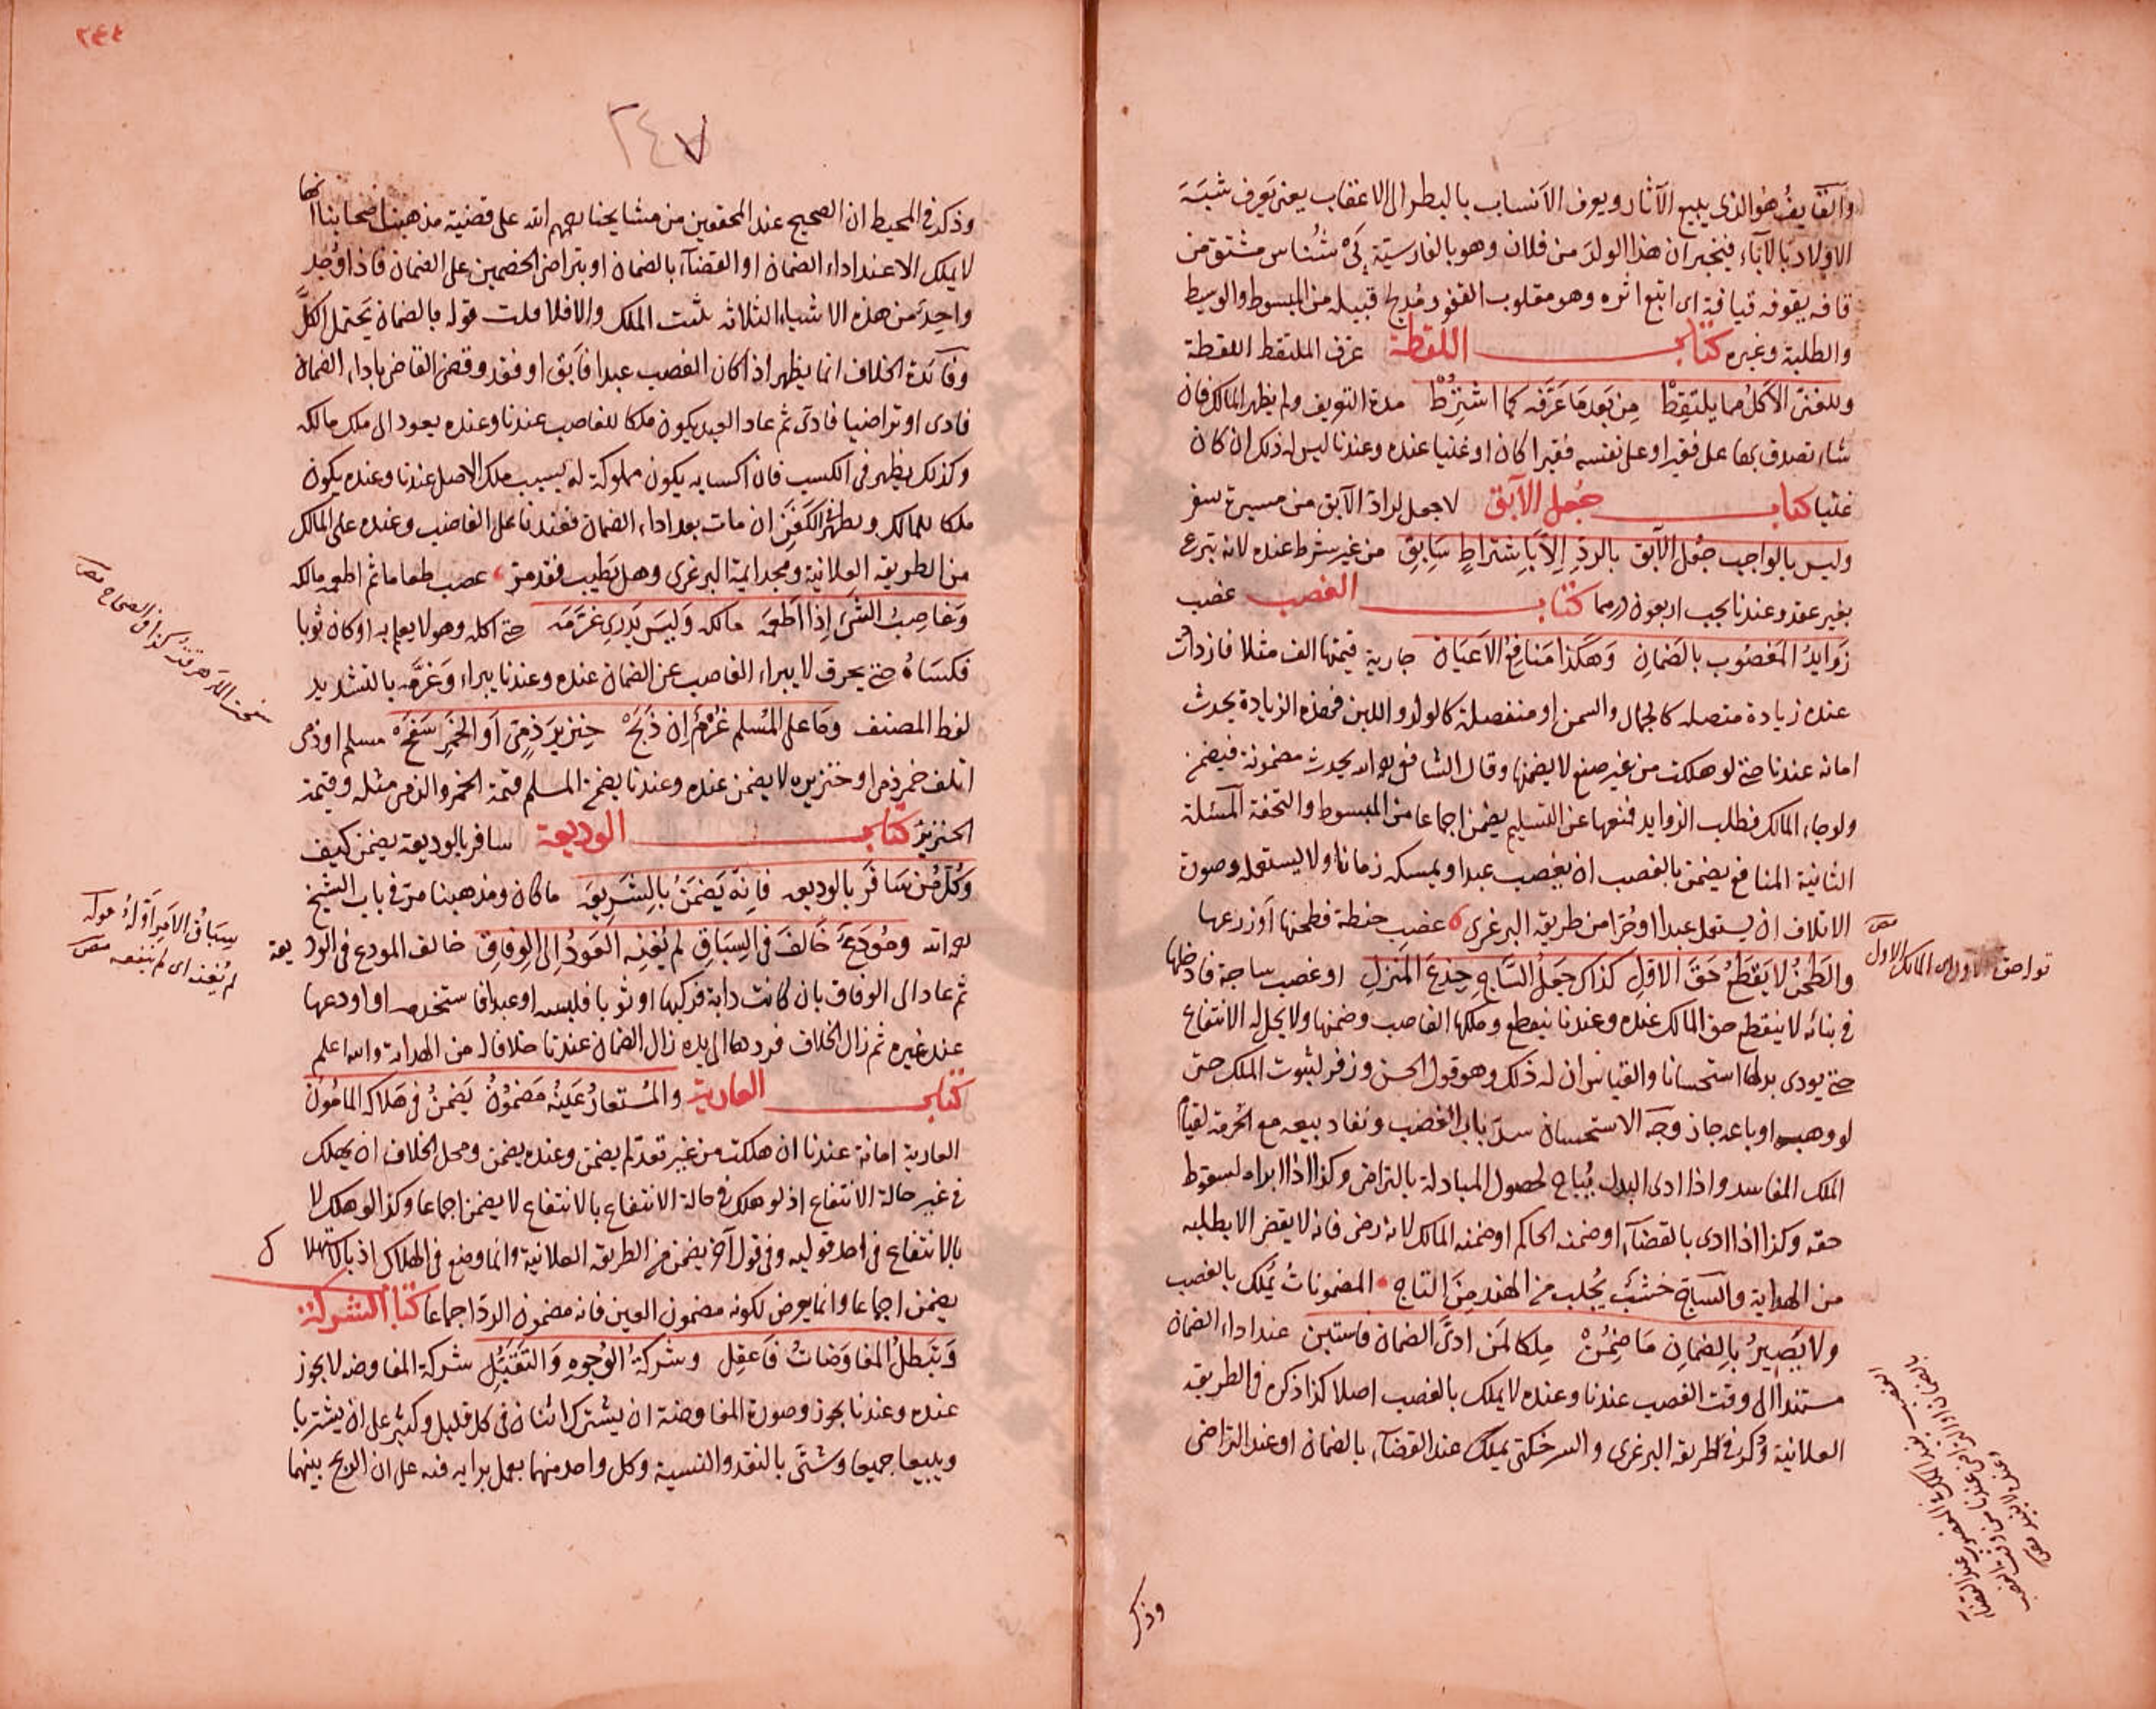 والقايف هو الذي يتبع الآثار ويعرف الأنساب بالنظر الى الاعقاب يعنى يعرف شبه
الاولاد بالآباء فيخبر ان هذا الولد من فلان وهو بالفارسية پى شناس مشتق من
قافه يقوفه قيافة اى اتبع اثره وهو مقلوب القفو من المبسوط والوسيط
والطلبة وغيره كتاب اللقطة عرف الملتقط اللقطة
وللغنى الاكل مما يلتقط من بعد ما عرفه كما اشترط مدة التعريف ولم يظهر المالك فان
شاء تصدق بها على فقير او على نفسه فقيرا كان او غنيا عنده وعندنا ليس له ذلك ان كان
غنيا كتاب جعل الآبق لا جعل لراد الآبق من مسيرة سفر
وليس بالواجب جعل الآبق بالرد الا باشتراط سابق من غير شرط عنده لانه تبرع
بغير عقد وعندنا يجب اربعون درهما كتاب الغصب غصب
زوايد المغصوب بالضمان وهكذا منافع الاعيان جارية قيمتها الف مثلا فازدادت
عنده زيادة متصله كالجمال والسمن او منفصلة كالولد واللبن فهذه الزيادة يحدث
امانة عندنا حتى لو هلكت من غير صنع لا يضمنها وقال الشافعى رحمه الله يحدث مضمونة فيضمن
ولو جاء المالك فطلب الزوايد فمنعها عن التسليم يضمن اجماعا من المبسوط والتحفة المسئلة
الثانية المنافع يضمن بالغصب ان يغصب عبدا ويمسكه زمانا ولا يستعمله وصورة
الاتلاف ان يستعمل عبدا او حرا من طريقه البرغرى غصب حنطة فطحنها او زرعها
والطحن لا يقطع حق الاول كذاك جعل الساج جذع المنزل او غصب ساجة فادخلها
فى بنائه لا ينقطع حق المالك عنده وعندنا ينقطع وملكها الغاصب وضمنها ولا يحل له الانتفاع
حتى يودى بدلها استحسانا والقياس ان له ذلك وهو قول الحسن وزفر لثبوت الملك حتى
لو وهبه او باعه جاز وجه الاستحسان سد باب الغصب ونفاد بيعه مع الحرمة لقيام
الملك الفاسد واذا ادى البدل يباح لحصول المبادلة بالتراضى وكذا اذا ابراه لسقوط
حقه وكذا اذا ادى بالقضاء او ضمنه الحاكم او ضمنه المالك لانه رضى فانه لا يقضى الا بطلبه
من الهداية والساج خشب يجلب من الهند من التاج المضمونات يملك بالغصب
ولا يصير بالضمان ما ضمن ملكا لمن ادى الضمان فاستبن عند اداء الضمان
مستندا الى وقت الغصب عندنا وعنده لا يملك بالغصب اصلا كذا ذكره فى الطريقه
العلانية وذكر فى طريقه البرغرى والسرخكتى يملك عند القضاء بالضمان او عند التراضى
وذكر
٢٤٧
وذكر فى المحيط ان الصحيح عند المحققين من مشايخنا رحمهم الله على قضية مذهب اصحابنا انها
لا يملك الا عند اداء الضمان او القضاء بالضمان او بتراضى الخصمين على الضمان فاذا وجد
واحد من هذه الاشياء الثلاثه يثبت الملك والا فلا قلت قوله بالضمان يحتمل الكل
وفائدة الخلاف انما يظهر اذا كان الغصب عبدا فابق او فقد وقضى القاضى باداء الضمان
فادى او تراضيا فادى ثم عاد العبد يكون ملكا للغاصب عندنا وعنده يعود الى ملك مالكه
وكذلك يظهر فى الكسب فان اكسابه يكون مملوكة له بسبب ملك الاصل عندنا وعنده يكون
ملكا للمالك ويظهر الكفن ان مات بعد اداء الضمان فعندنا على الغاصب وعنده على المالك
من الطريقه العلانية ومجد ائمة البرغرى وهل يطيب فقد مر غصب طعاما ثم اطعمه مالكه
وغاصب الشىء اذا اطعمه مالكه وليس يدرى غرمه حتى اكله وهو لا يعلم به او كان ثوبا
فكساه حتى يحرق لا يبراء الغاصب عن الضمان عنده وعندنا يبراء وغرمه بالتشديد
لفظ المصنف وما على المسلم غرم ان ذبح خنزير ذمى او الخمر سفح مسلم او ذمى
اتلف خمر ذمى او خنزيره لا يضمن عنده وعندنا يضمن المسلم قيمة الخمر والذمى مثله وقيمة
الخنزير كتاب الوديعة سافر بالوديعة يضمن كيف
وكل من سافر بالوديعه فانه يضمن بالشريعه ما كان ومذهبنا مر فى باب الشيخ
رحمه الله ومودع خالف فى السباق لم يغنه العود الى الوفاق خالف المودع فى الوديعة
ثم عاد الى الوفاق بان كانت دابة فركبها او ثوبا فلبسه او عبدا فاستخدمه او اودعها
عند غيره ثم زال الخلاف فردها الى يده زال الضمان عندنا خلافا له من الهداية والله اعلم
كتاب العارية والمستعار عينه مضمون يضمن فى هلاكه المامون
العارية امانة عندنا ان هلكت من غير تعد لم يضمن وعنده يضمن ومحل الخلاف ان يهلك
فى غير حالة الانتفاع اذ لو هلك فى حالة الانتفاع بالانتفاع لا يضمن اجماعا وكذا لو هلك لا
بالانتفاع فى احد قوليه وفى قول آخر يضمن من الطريقه العلانية وانما وضع فى الهلاك اذ بالاستهلاك
يضمن اجماعا وانما يعرض لكونه مضمون العين فانه مضمون الرد اجماعا كتاب الشركة
وتبطل المفاوضات فاعقل وشركة الوجوه والتقبل شركة المفاوضه لا يجوز
عنده وعندنا يجوز وصورة المفاوضة ان يشترك اثنان فى كل قليل وكثير على ان يشتريا
ويبيعا جميعا وشتى بالنقد والنسية وكل واحد منهما يعمل برايه فيه على ان الربح بينهما